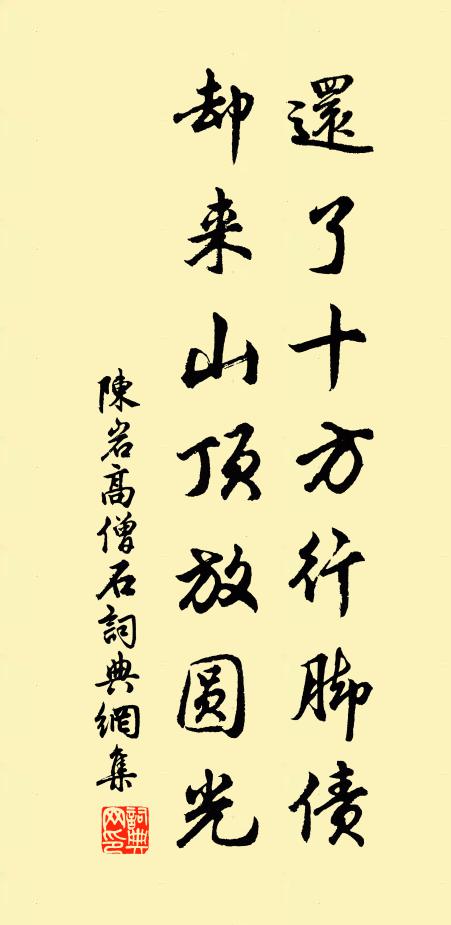 還了十方行脚债
却来山顶放圆光
陳岩高僧石詞典網集
詞典网印